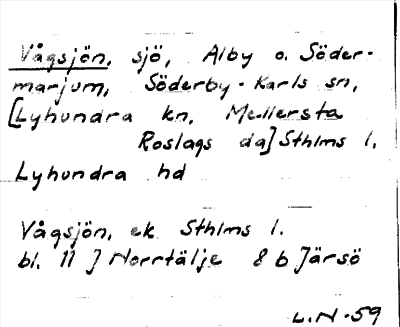 Vågsjön, sjö, Alby o. Söder-
marjum, Söderby-Karls sn,
[Lyhundra kn, Mellersta
Roslags da] Sthlms l.
Lyhundra hd
Vågsjön, ek Sthlms l.
bl. 11 J Norrtälje 8 b Järsö
L.N-59